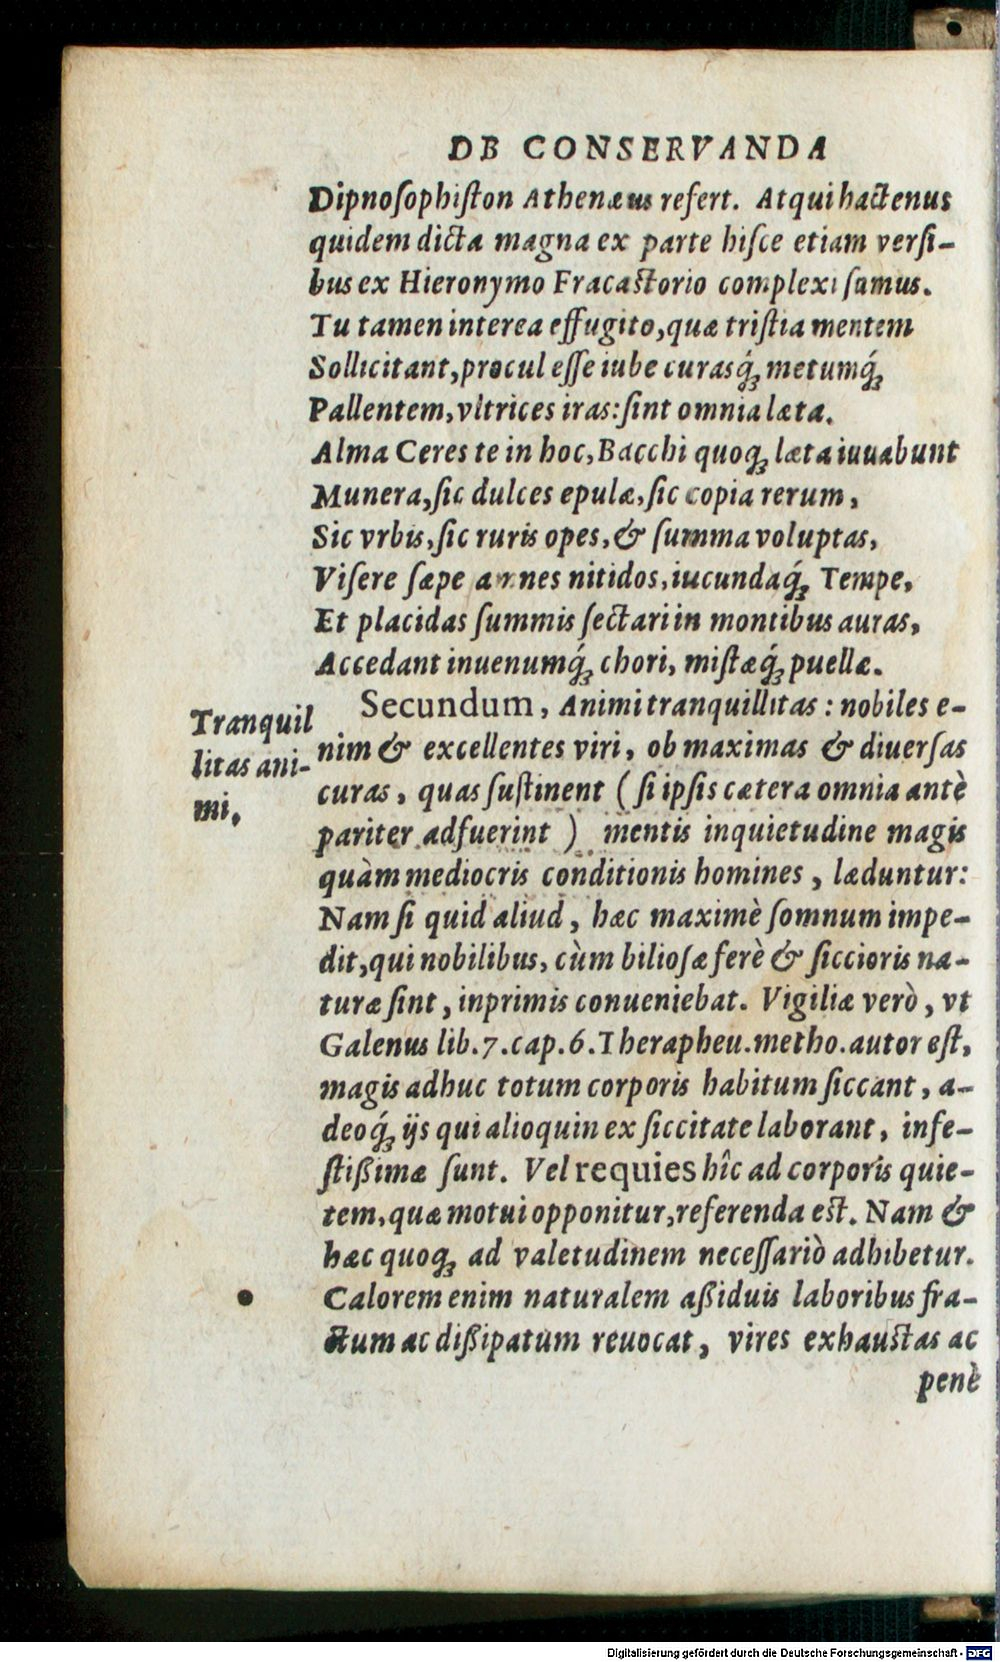 DE CONSERVANDA
Dipnoſophiſton Athenæus refert. Atqui hactenus
quidem dicta magna ex parte hiſce etiam verſi-
bus ex Hieronymo Fracaſtorio complexi ſumus.
Tu tamen interea effugito, quæ triſtia mentem
Sollicitant, procul eſſe iube curasq́; metumq́;
Pallentem, vltrices iras: ſint omnia læta.
Alma Ceres te in hoc, Bacchi quoq; læta iuuabunt
Munera, ſic dulces epulæ, ſic copia rerum,
Sic vrbis, ſic ruris opes, & ſumma voluptas,
Viſere ſæpe amnes nitidos, iucundaq́; Tempe,
Et placidas ſummis ſectari in montibus auras,
Accedant iuuenumq́; chori, miſtæq́; puellæ.
Secundum, Animi tranquillitas: nobiles e-
Tranquil
litas ani-
mi.
nim & excellentes viri, ob maximas & diuerſas
curas, quas ſuſtinent (ſi ipſis cætera omnia antè
pariter adfuerint) mentis inquietudine magis
quàm mediocris conditionis homines, læduntur:
Nam ſi quid aliud, hæc maximè ſomnum impe-
dit, qui nobilibus, cùm bilioſæ ferè & ſiccioris na-
turæ ſint, inprimis conueniebat. Vigiliæ verò, vt
Galenus lib. 7. cap. 6. Therapheu. metho. autor eſt,
magis adhuc totum corporis habitum ſiccant, a-
deoq́; ijs qui alioquin ex ſiccitate laborant, infe-
ſtißimæ ſunt. Vel requies hîc ad corporis quie-
tem, quæ motui opponitur, referenda eſt. Nam &
hæc quoq; ad valetudinem neceſſariò adhibetur.
Calorem enim naturalem aßiduis laboribus fra-
ctum ac dißipatum reuocat, vires exhauſtas ac
penè
Digitalisierung gefördert durch die Deutsche Forschungsgemeinschaft - DFG